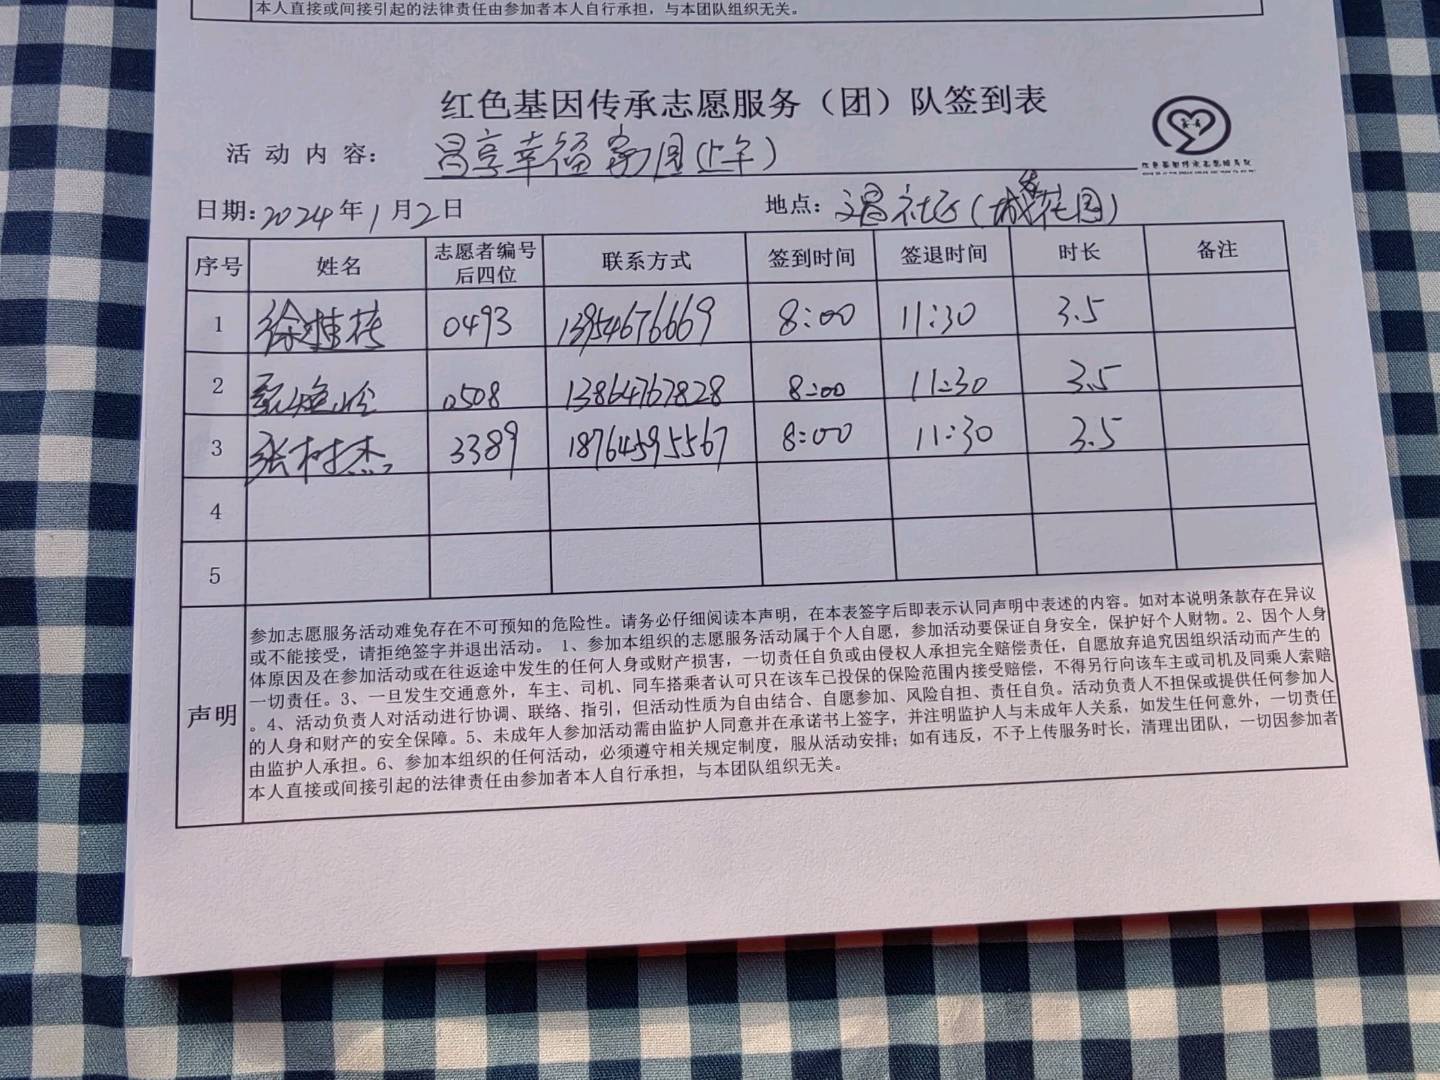 本人直接或间接引起的法律责任由参加者本人自行承担，与本团队组织无关。
红色基因传承志愿服务（团）队签到表
活动内容： 昌享幸福家园（上午）
日期：2024年1月2日 地点：文昌社区（城发花园）
序号 姓名 志愿者编号后四位 联系方式 签到时间 签退时间 时长 备注
1 徐 0493 13954676669 8:00 11:30 3.5
2 0508 13864767828 8:00 11:30 3.5
3 张树杰 3389 18764595567 8:00 11:30 3.5
4
5
声明
参加志愿服务活动难免存在不可预知的危险性。请务必仔细阅读本声明，在本表签字后即表示认同声明中表述的内容。如对本说明条款存在异议
或不能接受，请拒绝签字并退出活动。 1、参加本组织的志愿服务活动属于个人自愿，参加活动要保证自身安全，保护好个人财物。2、因个人身
体原因及在参加活动或在往返途中发生的任何人身或财产损害，一切责任自负或由侵权人承担完全赔偿责任，自愿放弃追究因组织活动而产生的
一切责任。3、一旦发生交通意外，车主、司机、同车搭乘者认可只在该车已投保的保险范围内接受赔偿，不得另行向该车主或司机及同乘人索赔
。4、活动负责人对活动进行协调、联络、指引，但活动性质为自由结合、自愿参加、风险自担、责任自负。活动负责人不担保或提供任何参加人
的人身和财产的安全保障。5、未成年人参加活动需由监护人同意并在承诺书上签字，并注明监护人与未成年人关系，如发生任何意外，一切责任
由监护人承担。6、参加本组织的任何活动，必须遵守相关规定制度，服从活动安排；如有违反，不予上传服务时长，清理出团队，一切因参加者
本人直接或间接引起的法律责任由参加者本人自行承担，与本团队组织无关。